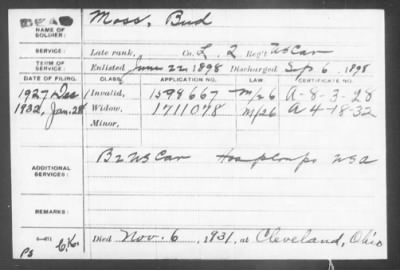 DEAD
NAME OF SOLDIER: Moss, Bud
SERVICE: Late rank, Co. L, 2 Reg't US Cav
TERM OF SERVICE: Enlisted June 22 1898 Discharged Sep 6, 1898
DATE OF FILING. CLASS. APPLICATION NO. LAW. CERTIFICATE NO.
1927 Dec Invalid, 1599667 M/26 A-8-3-28
1932, Jan. 28 Widow, 1711078 M/26 A 4-18-32
Minor,
ADDITIONAL SERVICES: B 2 US Cav Hosp Corps USA
REMARKS:
Died Nov. 6, 1931, at Cleveland, Ohio
Ps